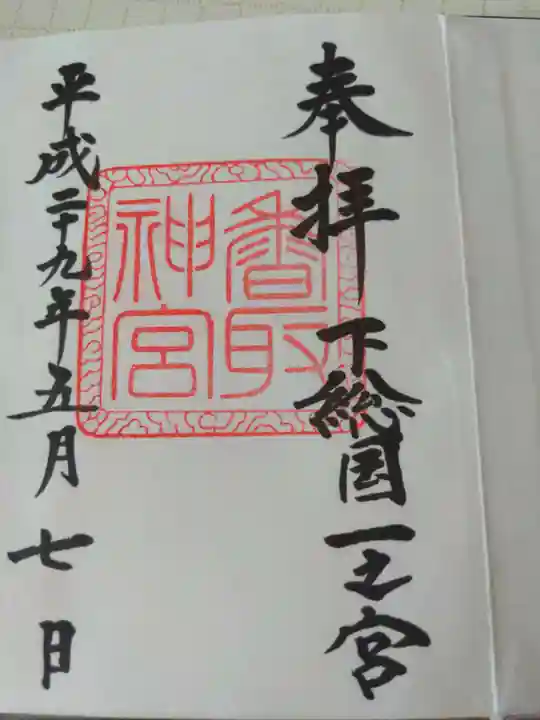 奉拝 下総國一之宮
香取
神宮
平成二十九年五月七日